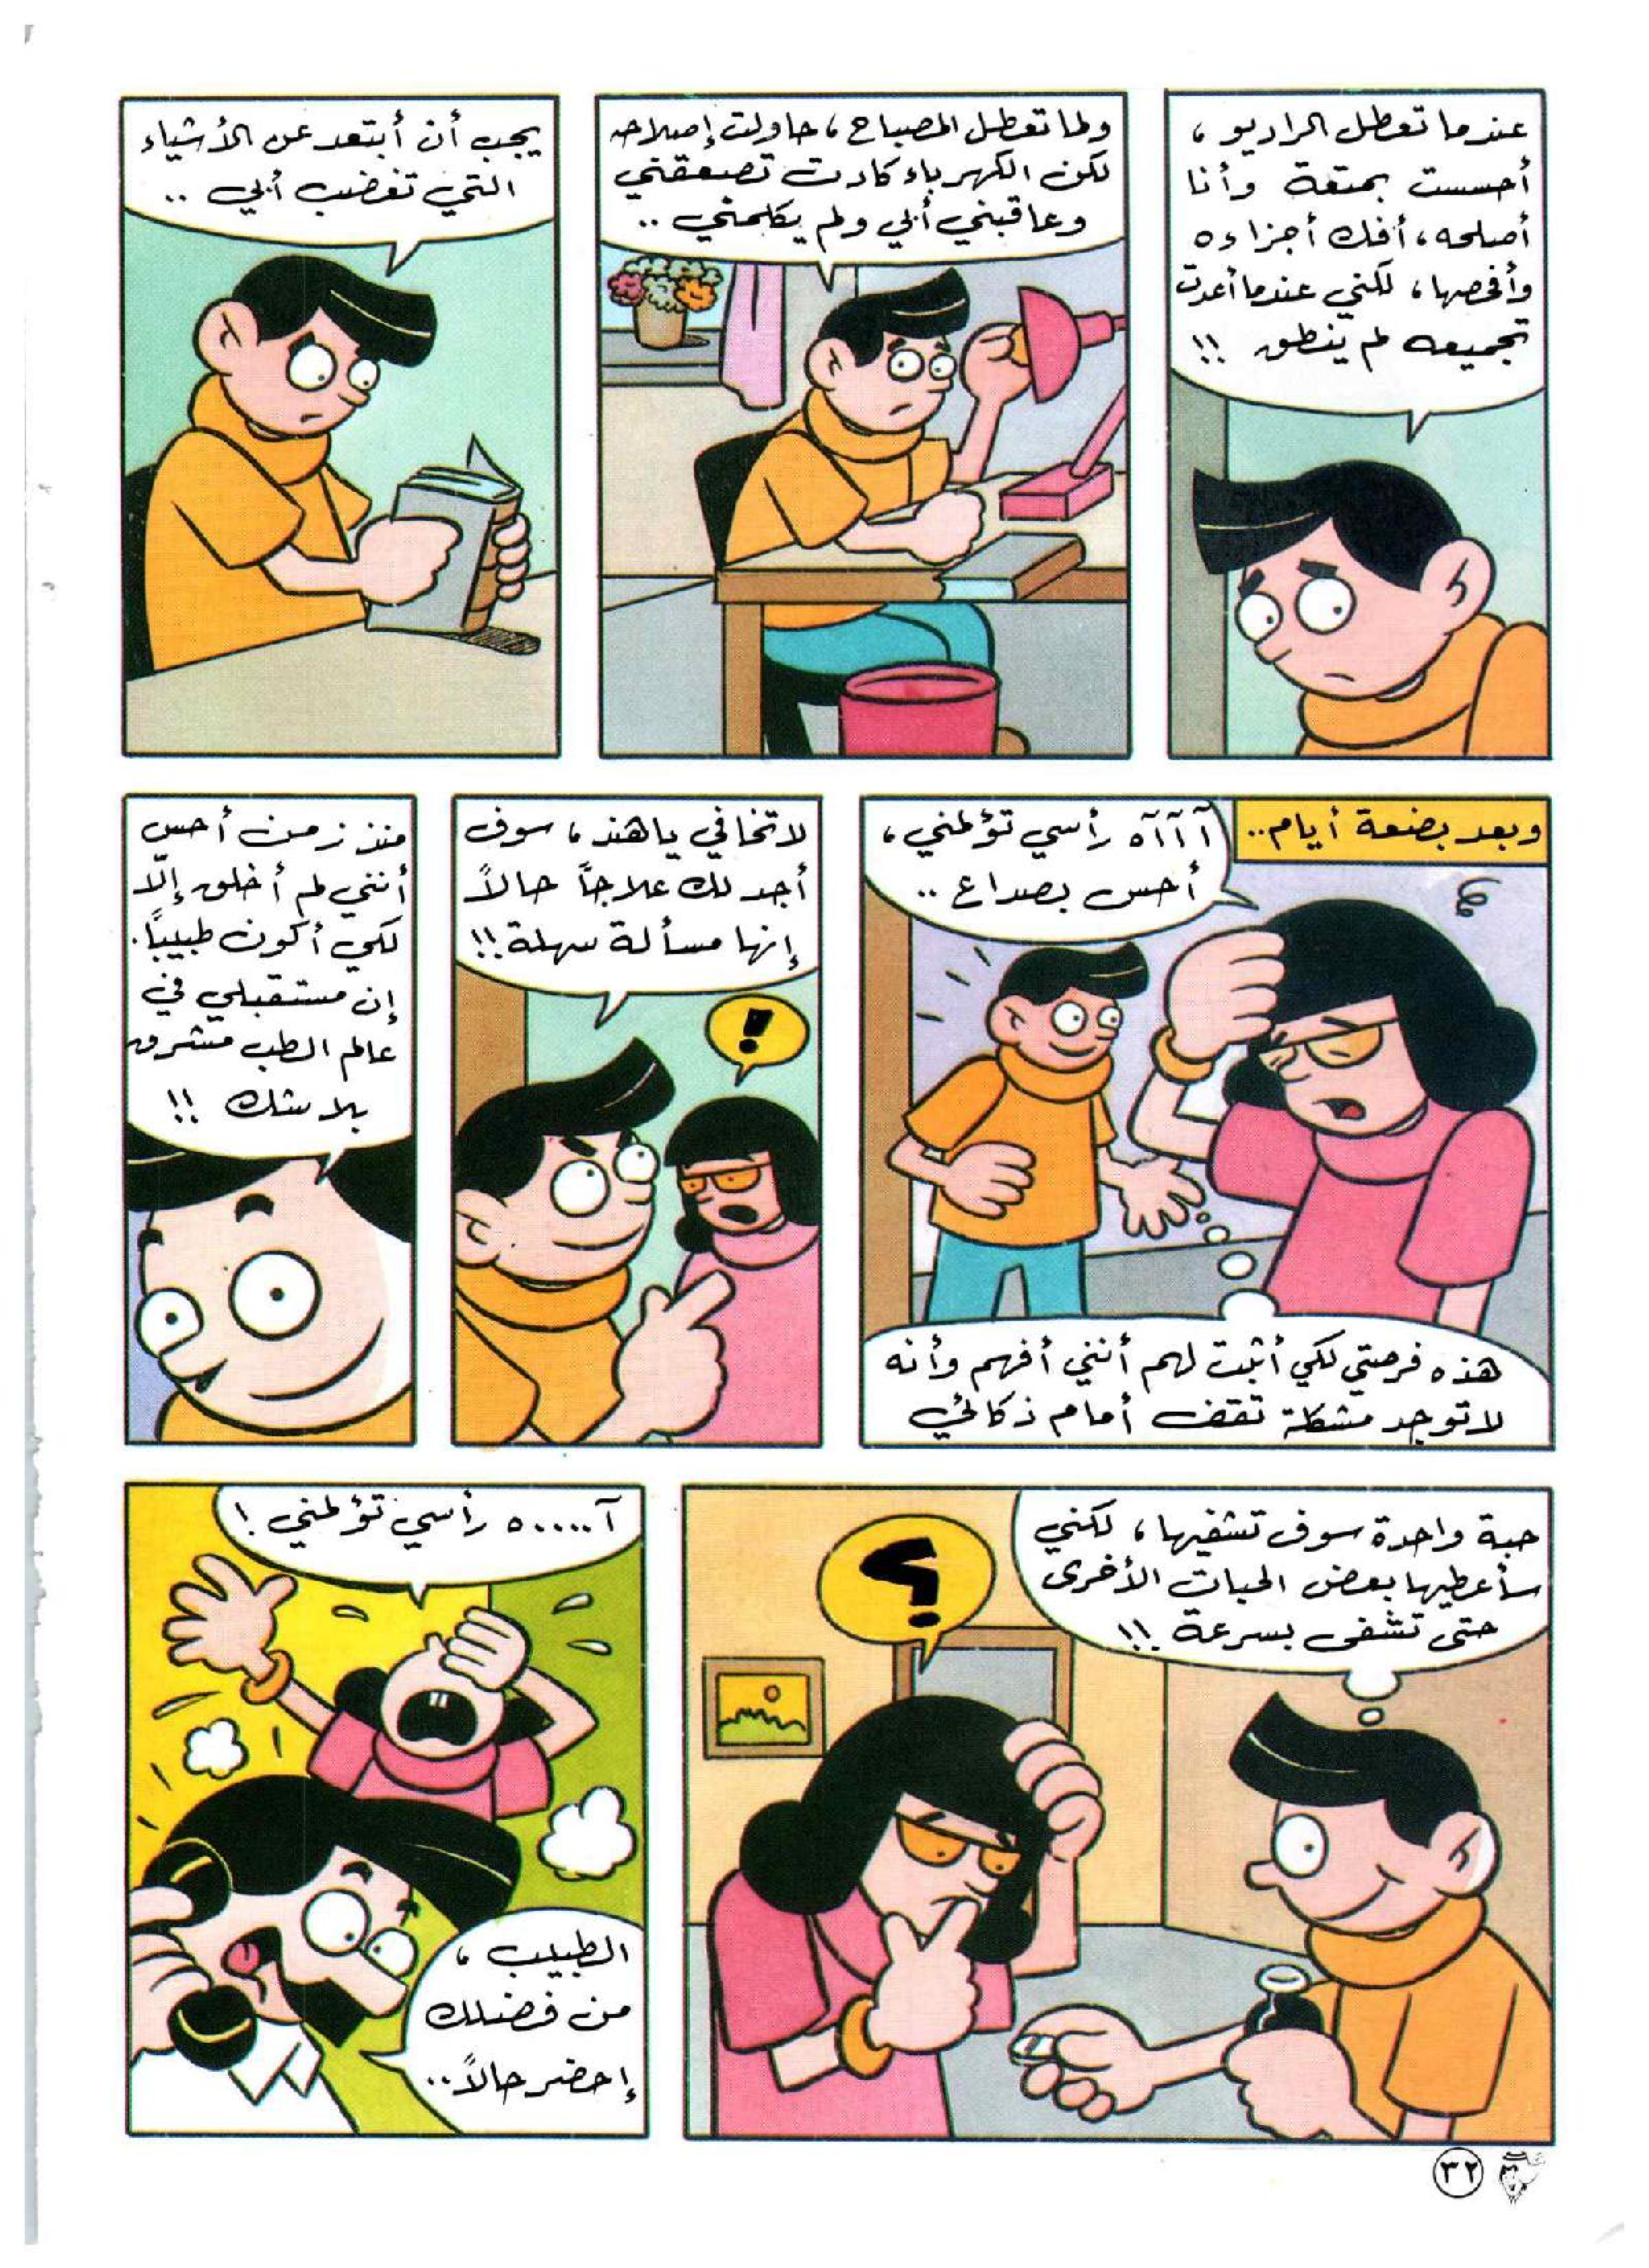 عندما تعطل الراديو،
أحسست بمتعة وأنا
أصلحه، أفك أجزاءه
وأفحصها، لكني عندما أعدت
تجميعه لم ينطق !!
ولما تعطل المصباح، حاولت إصلاحه
لكن الكهرباء كادت تصعقني
وعاقبني أبي ولم يكلمني ..
يجب أن أبتعد عن الأشياء
التي تغضب أبي ..
وبعد بضعة أيام..
آآآه رأسي تؤلمني،
أحس بصداع ..
هذه فرصتي لكي أثبت لهم أنني أفهم وأنه
لا توجد مشكلة تقف أمام ذكائي
لا تخافي يا هند، سوف
أجد لك علاجاً حالاً
إنها مسألة سهلة !!
!
منذ زمن أحس
أنني لم أخلق إلّا
لكي أكون طبيباً.
إن مستقبلي في
عالم الطب مشرق
بلا شك !!
حبة واحدة سوف تشفيها، لكني
سأعطيها بعض الحبات الأخرى
حتى تشفى بسرعة !!
؟
آ.....ه رأسي تؤلمني !
الطبيب،
من فضلك
إحضر حالاً..
٣٢